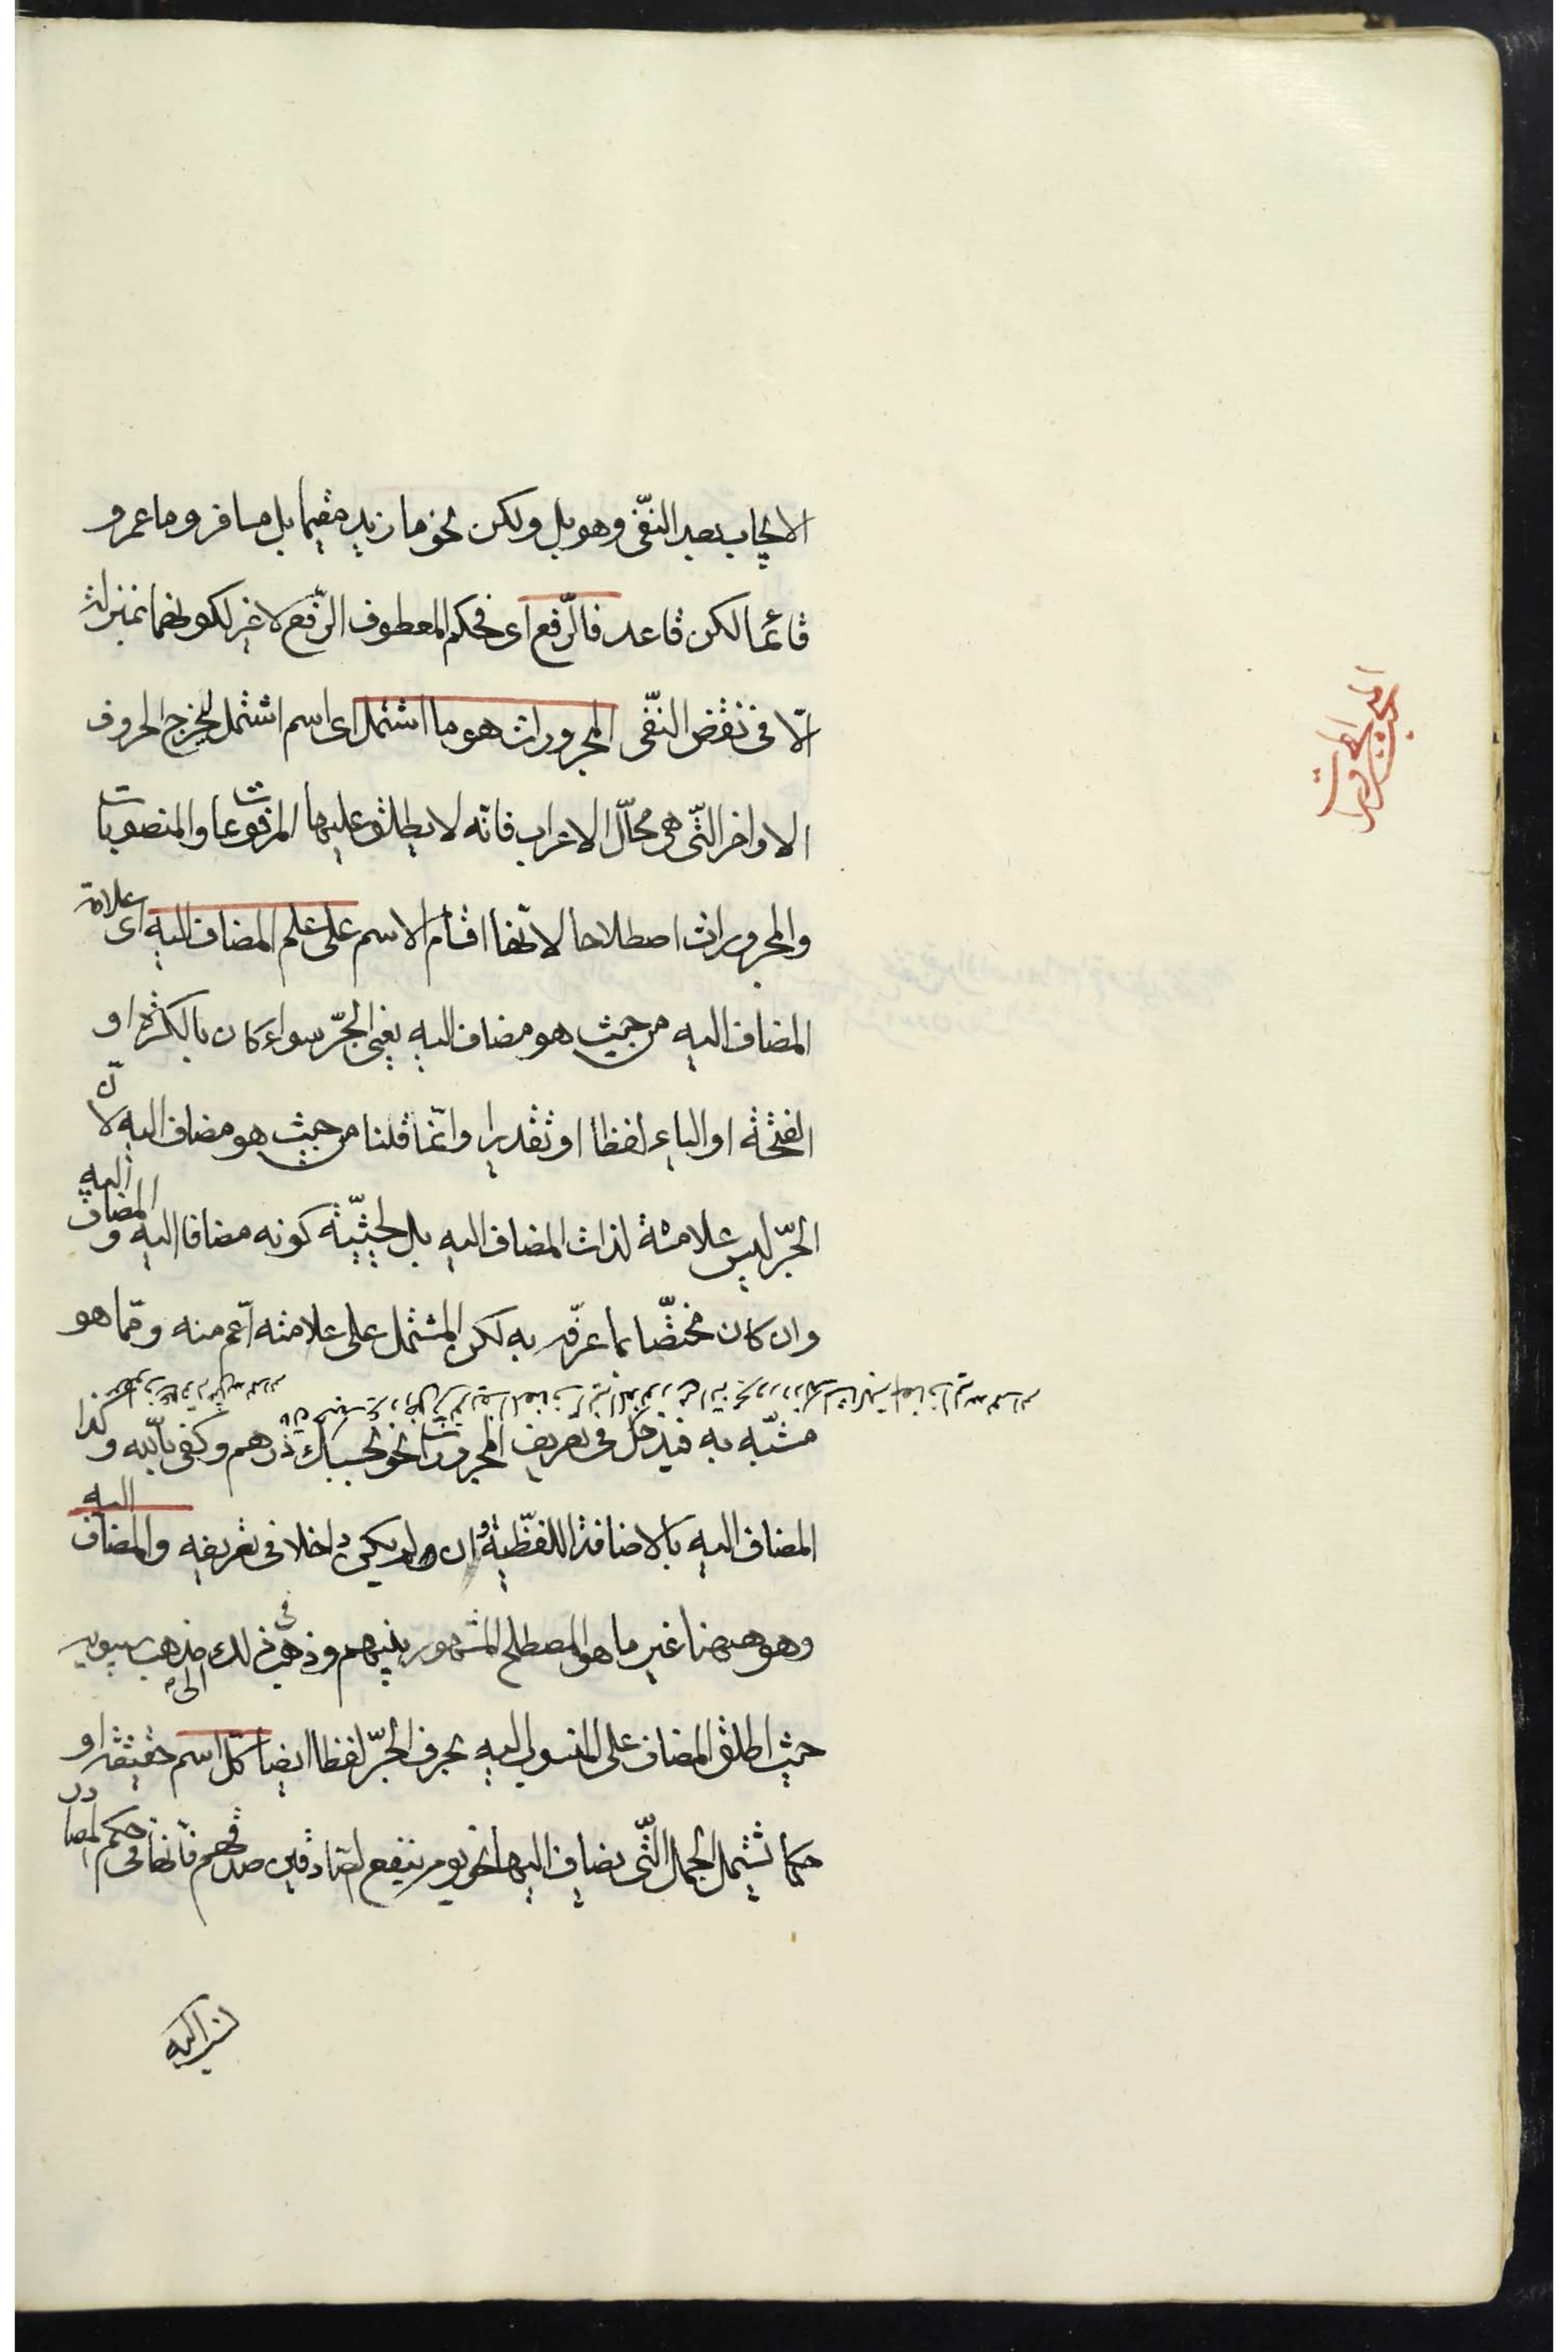 الايجاب بعد النفى وهو بل ولكن نحو ما زيد مقيما بل مسافر وما عمرو
قائما لكن قاعد فالرّفع اى فحكم المعطوف الرّفع لا غير لكونهما بمنزلة
الّا فى نقض النفى المجرورات هو ما اشتمل اى اسم اشتمل ليخرج الحروف
الاواخر الّتى هى محالّ الاعراب فانّه لا يطلق عليها المرفوعات والمنصوبات
والمجرورات اصطلاحا لانّها اقسام الاسم على علم المضاف اليه اى علامة
المضاف اليه من حيث هو مضاف اليه يعنى الجرّ سواء كان بالكسرة او
الفتحة او الياء لفظا او تقديرا وانّما قلنا من حيث هو مضاف اليه لانّ
الجرّ ليس علامة لذات المضاف اليه بل لحيثيّة كونه مضافا اليه والمضاف اليه
وان كان مختصّا بما عرّفه به لكن المشتمل على علامته اعّم منه وممّا هو
مشبّه به فيدخل فى تعريف المجرورات نحو بحسبك درهم وكفى باللّه وكذا
المضاف اليه بالاضافة اللفظّية وان لم يكن داخلا فى تعريفه والمضاف اليه
وهو ههنا غير ما هو المصطلح المشهور بينهم وذهب فى ذلك الى مذهب سيبويه
حيث اطلق المضاف على المنسوب اليه بحرف الجرّ لفظا ايضا كلّ اسم حقيقة او
حكما تشتمل الجمل الّتى يضاف اليها نحو يوم ينفع الصّادقين صدقهم فانّها فى حكم المصادر